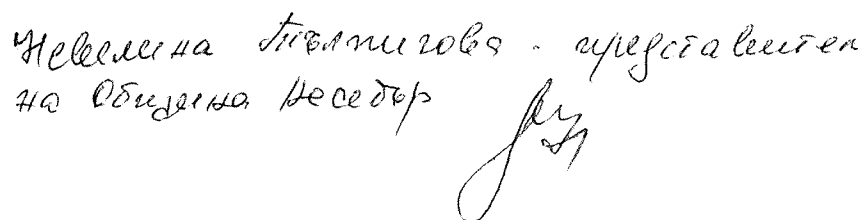 Невелина Тълпигова - представител
на Община Несебър